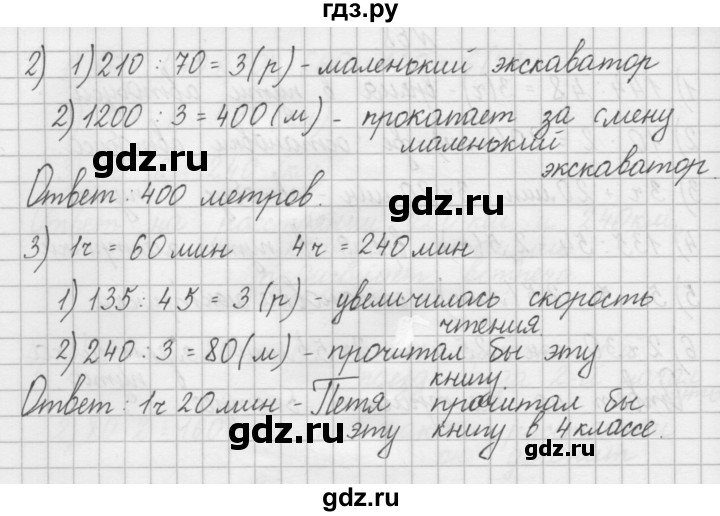 гдз.ру
2) 1) 210 : 70 = 3 (р) - маленький экскаватор
2) 1200 : 3 = 400 (м) - прокапает за смену
маленький
экскаватор.
gdz.ru
Ответ: 400 метров.
gdz.ru
3) 1ч = 60 мин 4 ч = 240 мин
1) 135 : 45 = 3 (р) - увеличилась скорость
чтения.
gdz.ru
2) 240 : 3 = 80 (м) - прочитал бы эту
книгу.
Ответ: 1ч 20 мин - Петя прочитал бы
эту книгу в 4 классе.
gdz.ru
gdz.ru
gdz.ru